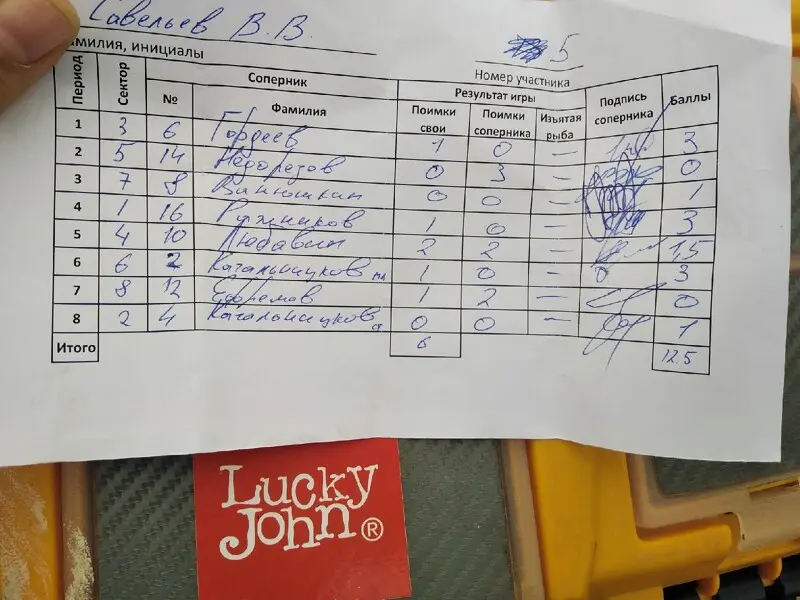 Савельев В.В.
амилия, инициалы
5
Номер участника
Период Сектор Соперник Результат игры Подпись соперника Баллы
№ Фамилия Поимки свои Поимки соперника Изъятая рыба
1 3 6 Гордеев 1 0 — 3
2 5 14 Недорезов 0 3 — 0
3 7 8 Ванюшкин 0 0 — 1
4 1 16 Ружников 1 0 — 3
5 4 10 Любавин 2 2 — 1,5
6 6 2 Качальницков мл 1 0 — 3
7 8 12 Ефремов 1 2 — 0
8 2 4 Качальницков ст 0 0 — 1
Итого 6 12.5
Lucky
John ®